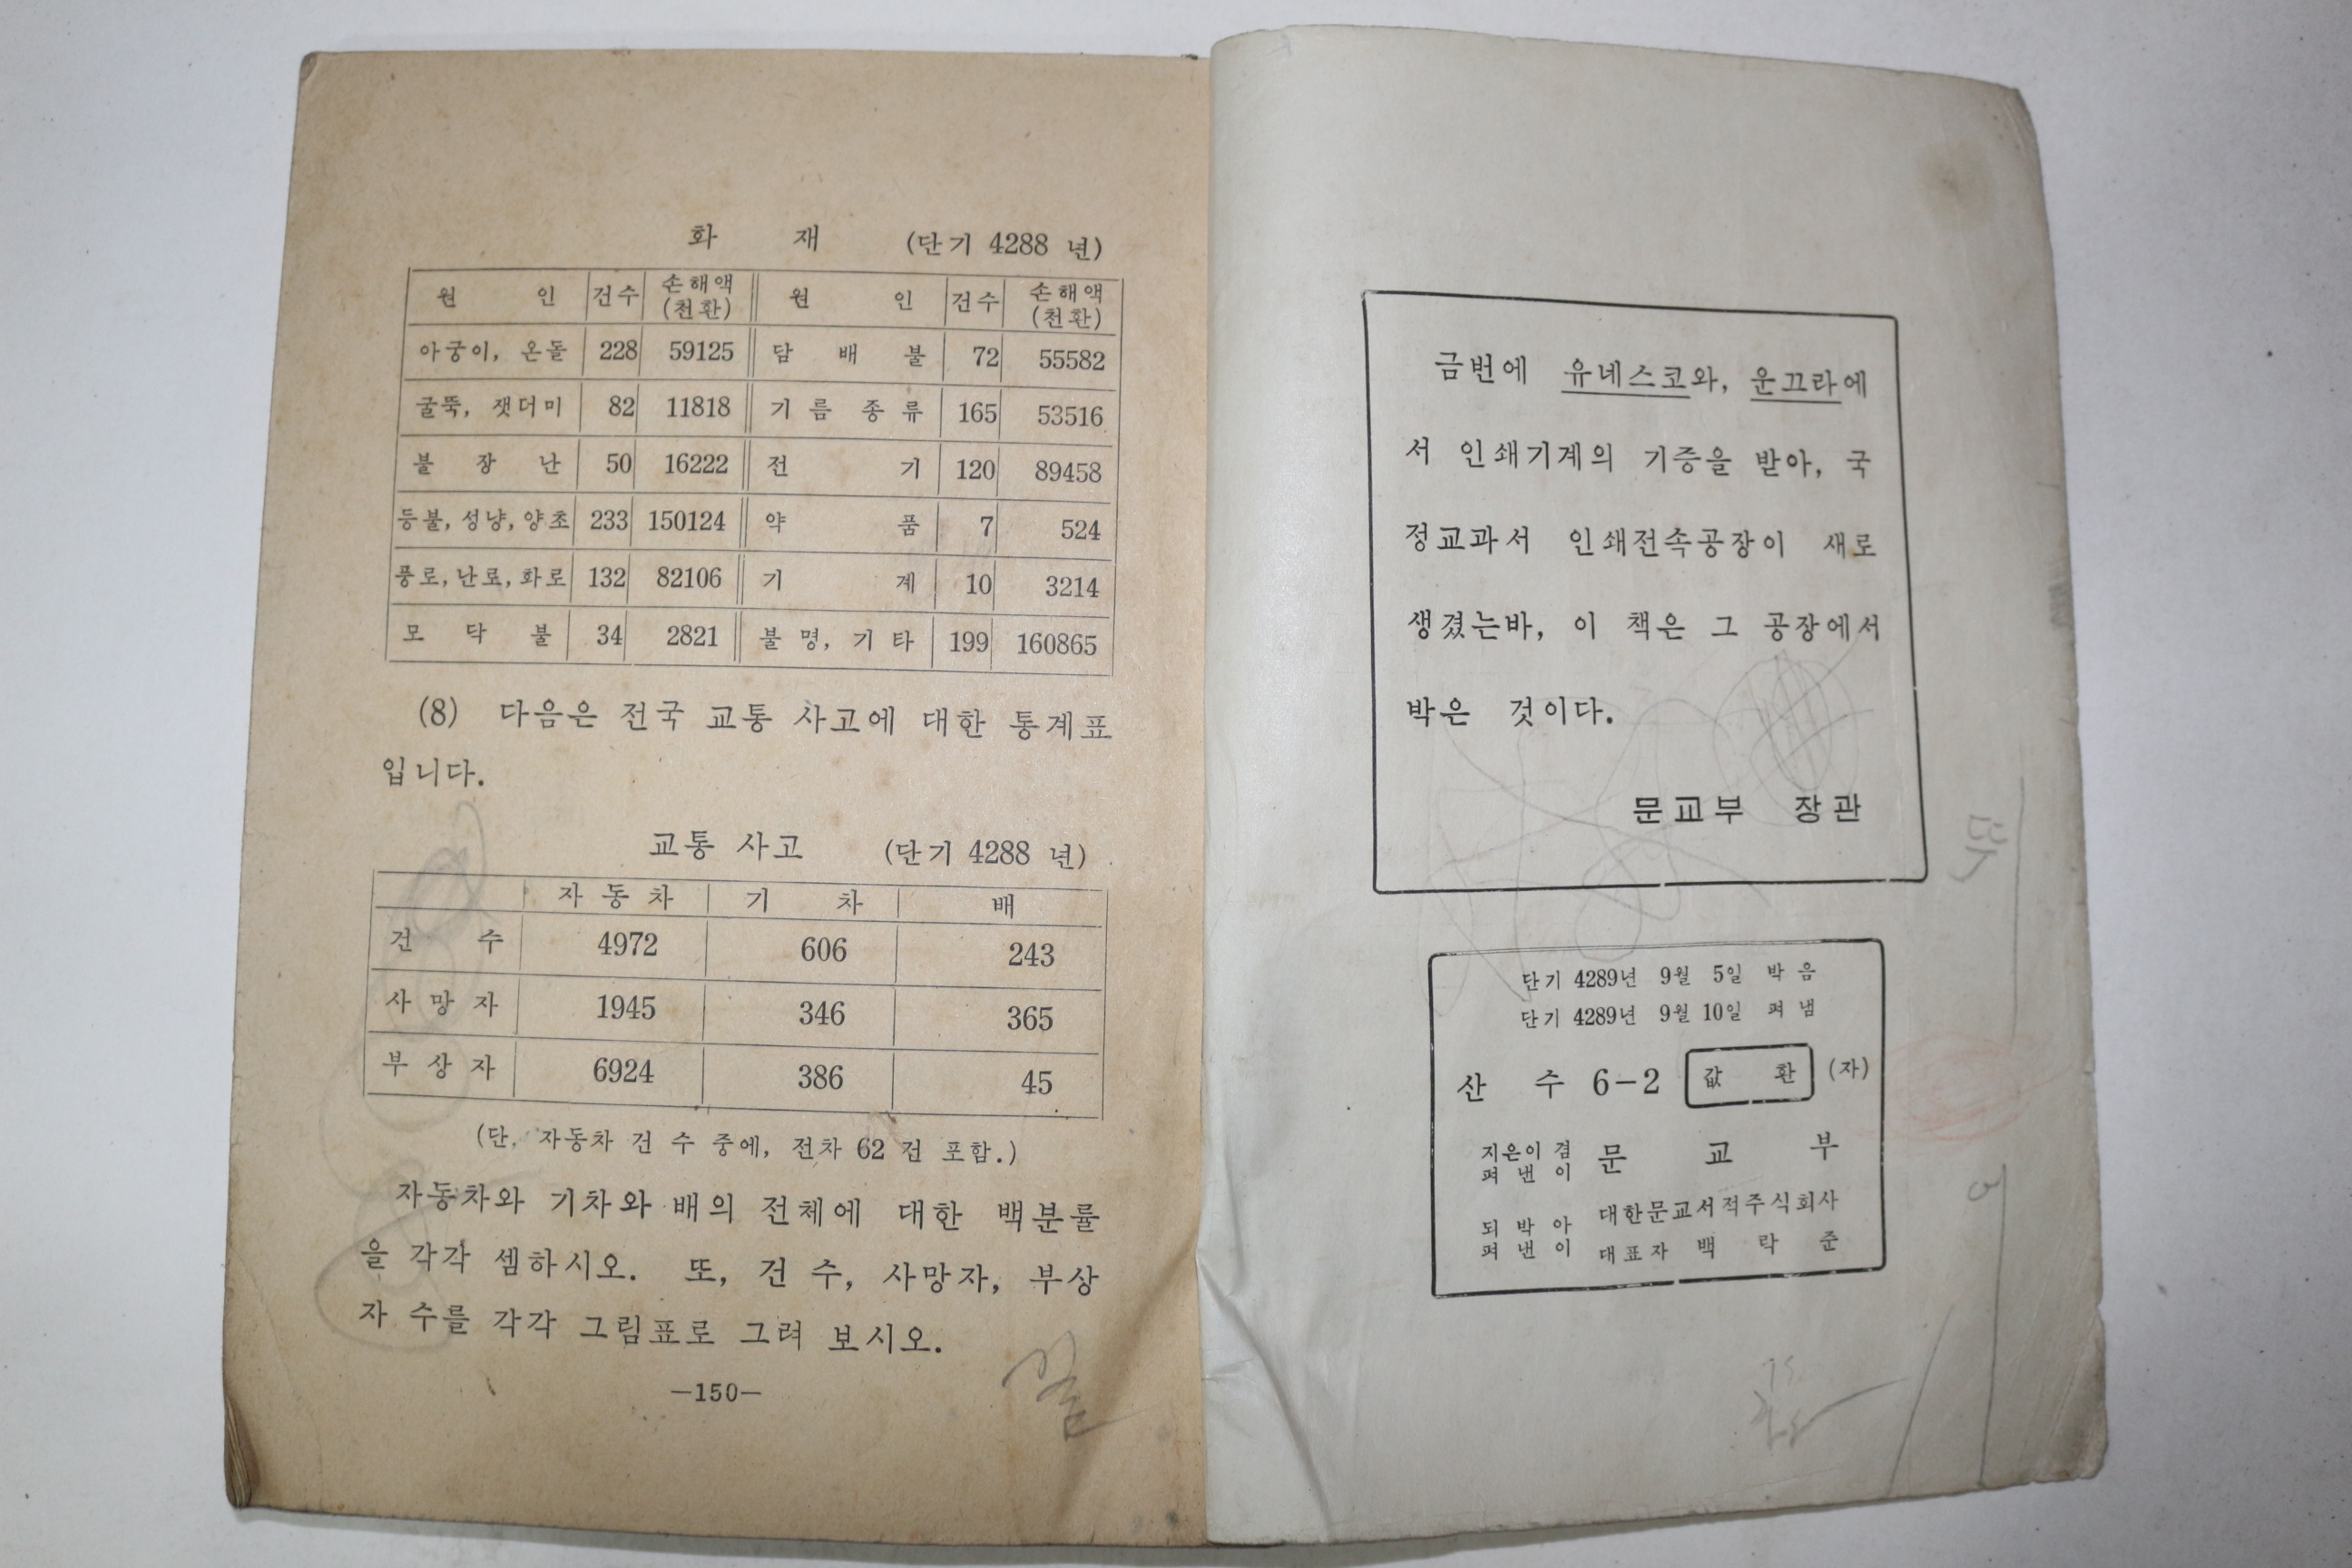 화 재 (단기 4288 년)
원 인 건수 손해액(천환) 원 인 건수 손해액(천환)
아궁이, 온돌 228 59125 담 배 불 72 55582
굴뚝, 잿더미 82 11818 기 름 종 류 165 53516
불 장 난 50 16222 전 기 120 89458
등불, 성냥, 양초 233 150124 약 품 7 524
풍로, 난로, 화로 132 82106 기 계 10 3214
모 닥 불 34 2821 불 명, 기 타 199 160865
(8) 다음은 전국 교통 사고에 대한 통계표
입니다.
교통 사고 (단기 4288 년)
자 동 차 기 차 배
건 수 4972 606 243
사 망 자 1945 346 365
부 상 자 6924 386 45
(단, 자동차 건 수 중에, 전차 62 건 포함.)
자동차와 기차와 배의 전체에 대한 백분률
을 각각 셈하시오. 또, 건 수, 사망자, 부상
자 수를 각각 그림표로 그려 보시오.
—150—
금번에 유네스코와, 운끄라에
서 인쇄기계의 기증을 받아, 국
정교과서 인쇄전속공장이 새로
생겼는바, 이 책은 그 공장에서
박은 것이다.
문교부 장관
단기 4289년 9월 5일 박 음
단기 4289년 9월 10일 펴 냄
산 수 6-2 값 환 (자)
지은이 겸
펴 낸 이 문 교 부
되 박 아 대한문교서적주식회사
펴 낸 이 대표자 백 락 준